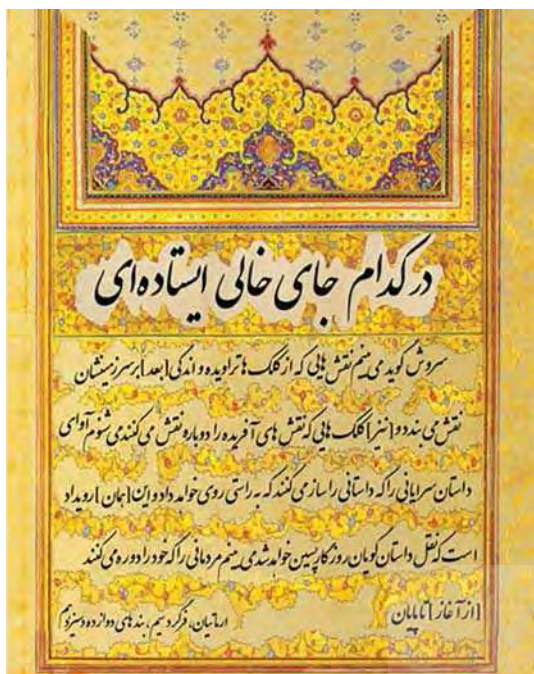 در کدام جای خالی ایستاده‌ای
سروش گوید می بینم نقش هایی که از کلک ها تراویده و اندکی [بعد] بر سرزمینشان
نقش می بندد و [نیز] کلک هایی که نقش های آفریده را دوباره نقش می کنند می شنوم آوای
داستان سرایانی را که داستانی را ساز می کنند که به راستی روی خواهد داد و این [همان] رویداد
است که نقل داستان گویان روزگار پسین خواهد شد می بینم مردمانی را که خود را دوره می کنند
[از آغاز] تا پایان
ارماتیان، فرگرد سیم، بندهای دوازده و سیزدهم